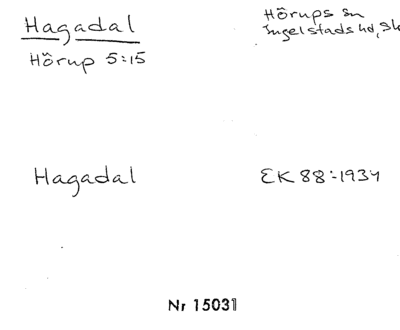 Hagadal
Hörups sn
Ingelstads hd, Sk
Hörup 5:15
Hagadal
EK 88:1934
Nr 15031